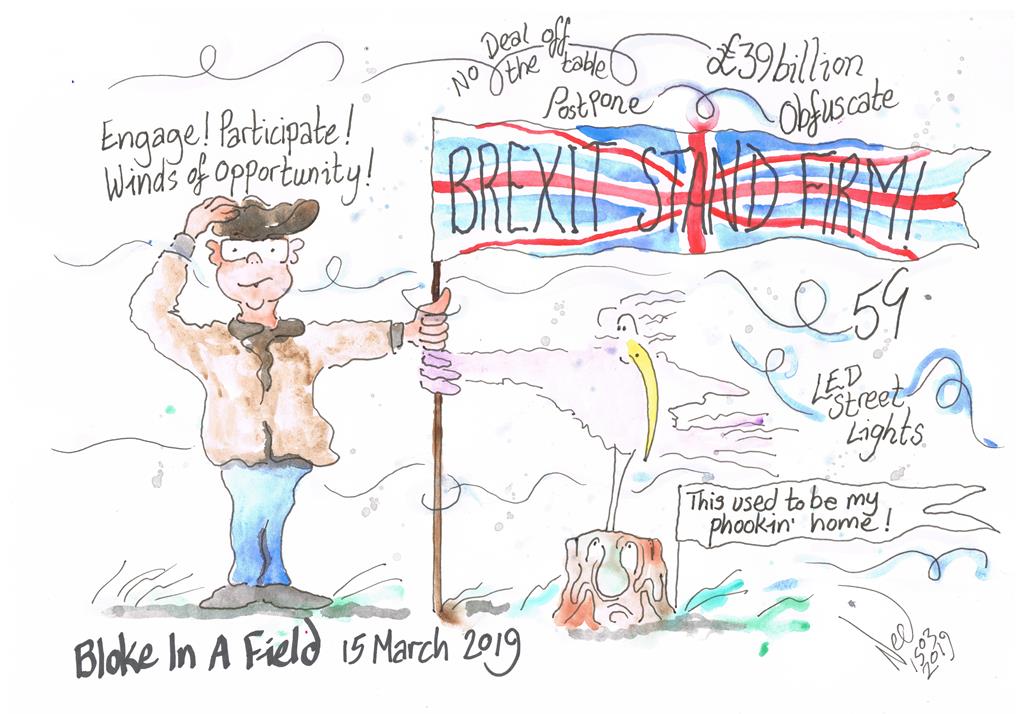 No Deal off
the table
£39 billion
Postpone
Obfuscate
Engage! Participate!
Winds of opportunity!
BREXIT STAND FIRM!
5G
LED
Street
Lights
This used to be my
phookin' home!
Bloke In A Field 15 March 2019
15.03
2019